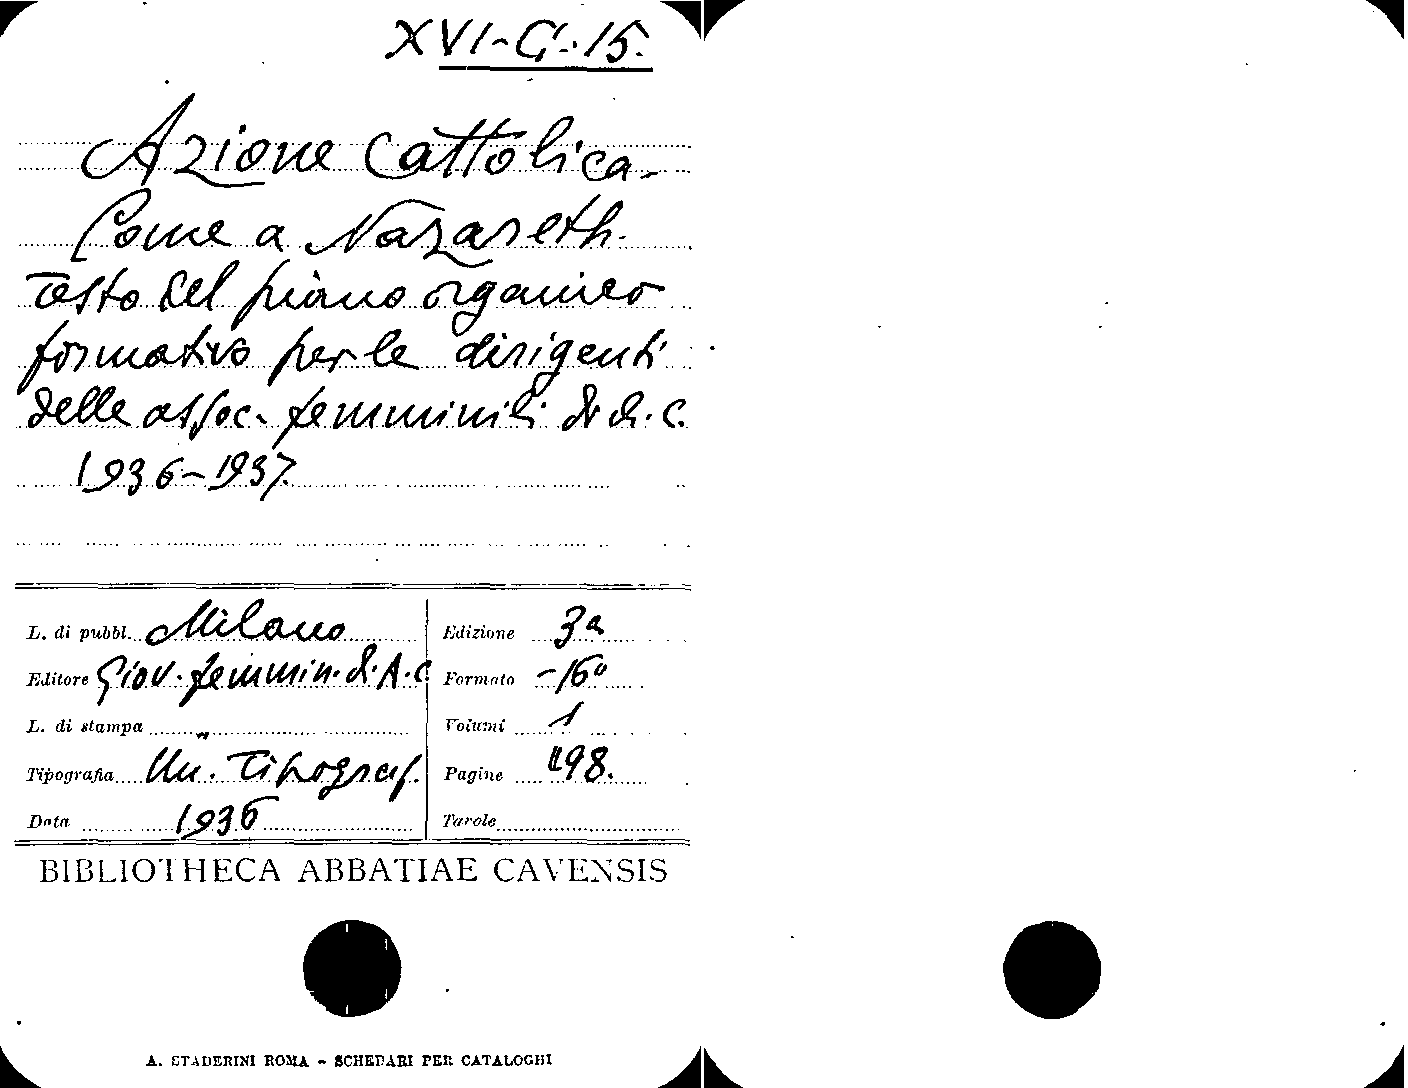 XVI-G.-15.
Azione Cattolica-
Come a Nazareth.
Testo del piano organico
formativo per le dirigenti
delle assoc. femminili di A.C.
1936-1937.
L. di pubbl. Milano
Editore Giov. femmin. di A.C.
L. di stampa "
Tipografia Un. Tipograf.
Data 1936
Edizione 3a
Formato -16°
Volumi 1
Pagine 198.
Tavole
BIBLIOTHECA ABBATIAE CAVENSIS
A. STADERINI ROMA - SCHEDARI PER CATALOGHI